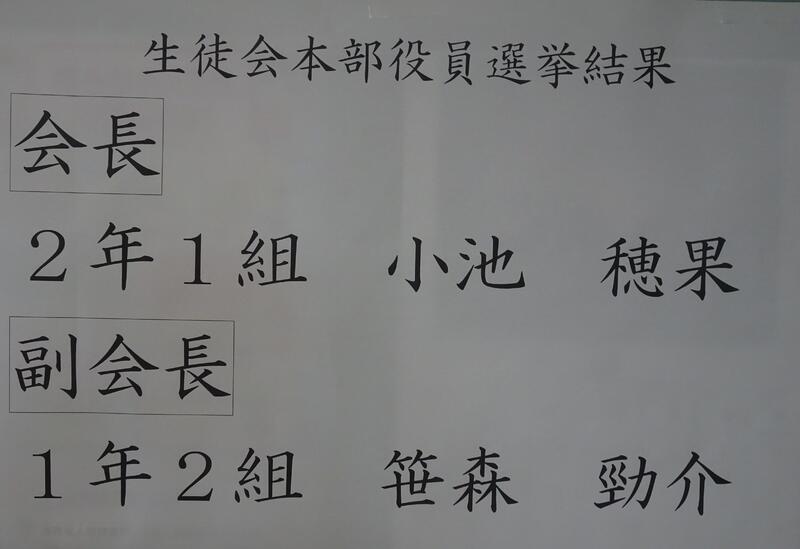 生徒会本部役員選挙結果
会長
2年1組 小池 穂果
副会長
1年2組 笹森 勁介